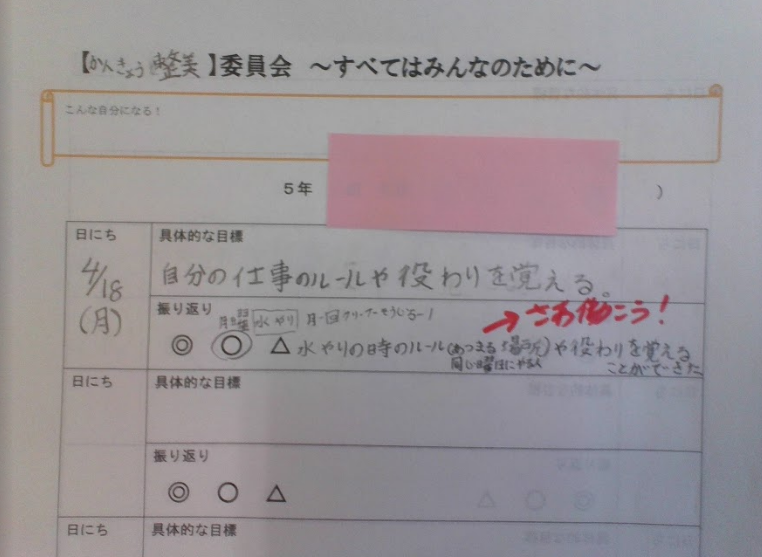 【かんきょう整美】委員会 ～すべてはみんなのために～
こんな自分になる！
5年 )
日にち 具体的な目標
4/18 自分の仕事のルールや役わりを覚える。
(月)
振り返り → さあ働こう！
水やり 月一回クリーナーそうじ
◎ ○ △ 水やりの日時のルール(あつまる場所)や役わりを覚える
同じ曜日にやる人 ことができた
日にち 具体的な目標
振り返り
◎ ○ △
日にち 具体的な目標